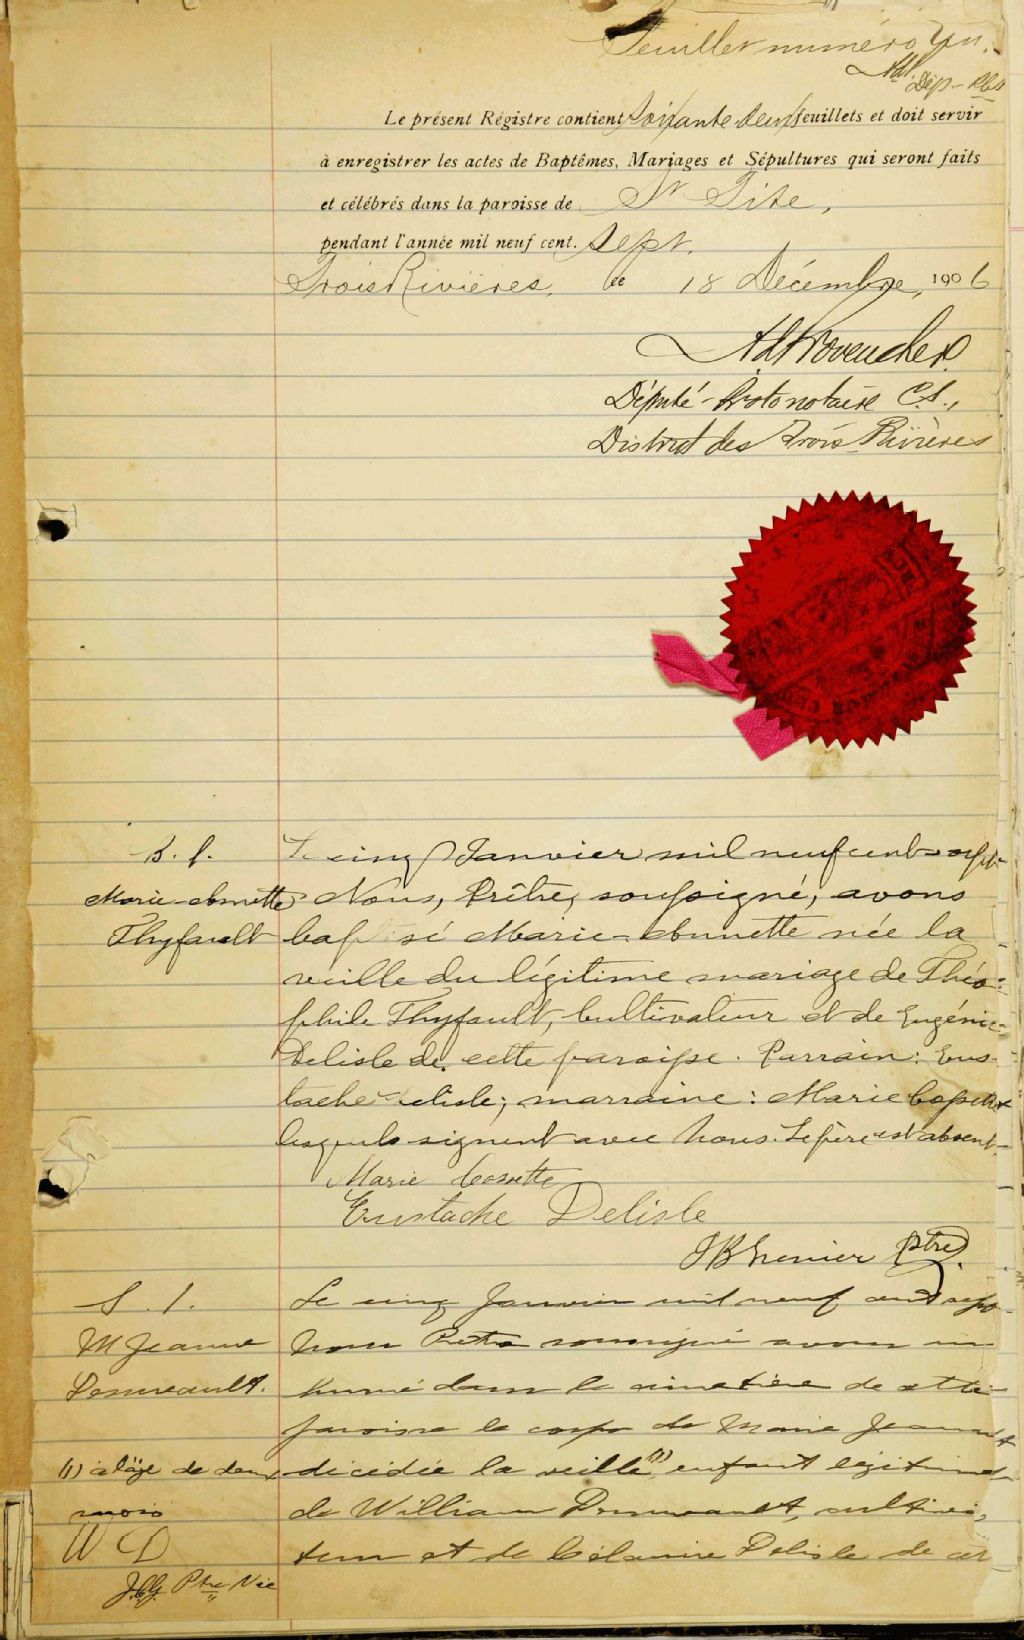 Feuillet numéro Un.
Dép-
Le présent Régistre contient soixante deux feuillets et doit servir
à enregistrer les actes de Baptêmes, Mariages et Sépultures qui seront faits
et célébrés dans la paroisse de St Tite,
pendant l'année mil neuf cent. sept.
Trois Rivières, ce 18 Décembre, 1906
Député-Protonotaire C.S.,
District des Trois-Rivières
B. 1.
Marie-Annette
Thyfault
Le cinq Janvier mil neuf cent sept
Nous, Prêtre, soussigné, avons
baptisé Marie-Annette née la
veille du légitime mariage de Théo-
phile Thyfault, cultivateur et de Eugénie
Delisle de cette paroisse. Parrain: Eus-
tache Delisle; marraine: Marie Cossette
lesquels signent avec Nous. Le père est absent.
Marie Cossette
Eustache Delisle
JBGrenier Ptre.
S. 1.
M Jeanne
(1) à l'âge de deux
mois
W D
J.B.G. Ptre Vic
Le cinq Janvier mil neuf cent sept
nous Prêtre soussigné avons in-
humé dans le cimetière de cette
paroisse le corps de Marie Jeanne
décédée la veille (1) enfant légitime
de William cultiva-
teur et de Célanire Delisle de cet